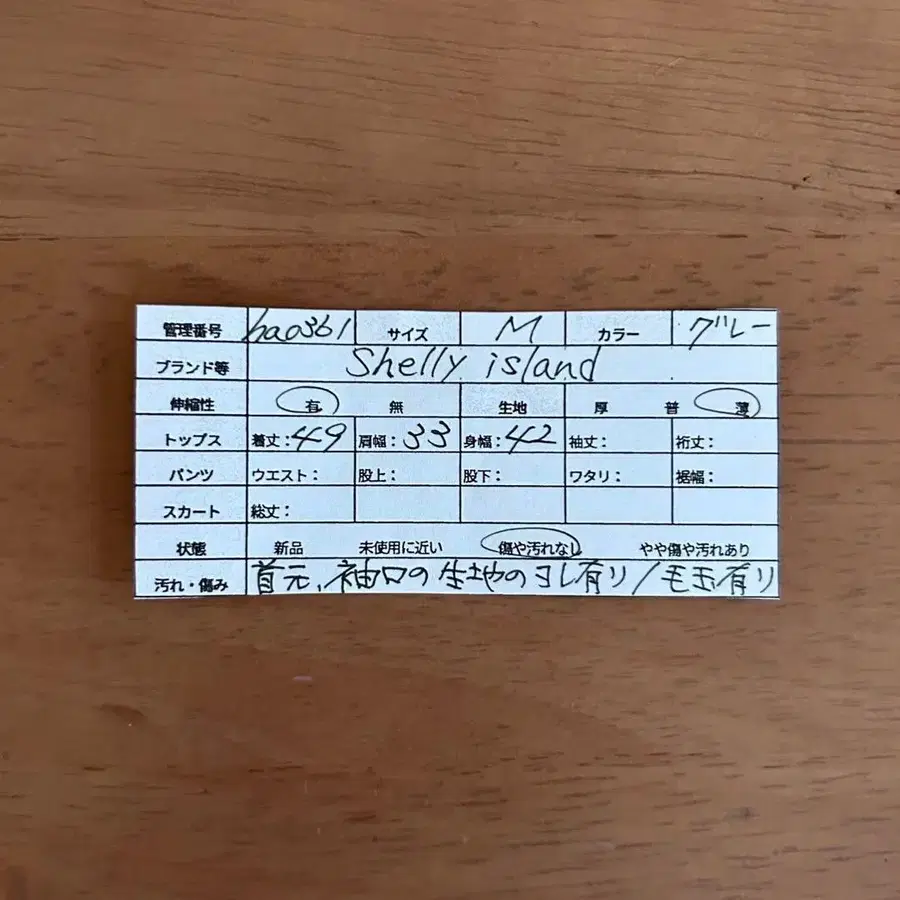 管理番号 ha0361 サイズ M カラー グレー
ブランド等 Shelly island
伸縮性 有 無 生地 厚 普 薄
トップス 着丈:49 肩幅:33 身幅:42 袖丈: 裄丈:
パンツ ウエスト: 股上: 股下: ワタリ: 裾幅:
スカート 総丈:
状態 新品 未使用に近い 傷や汚れなし やや傷や汚れあり
汚れ・傷み 首元、袖口の生地のヨレ有り/毛玉有り